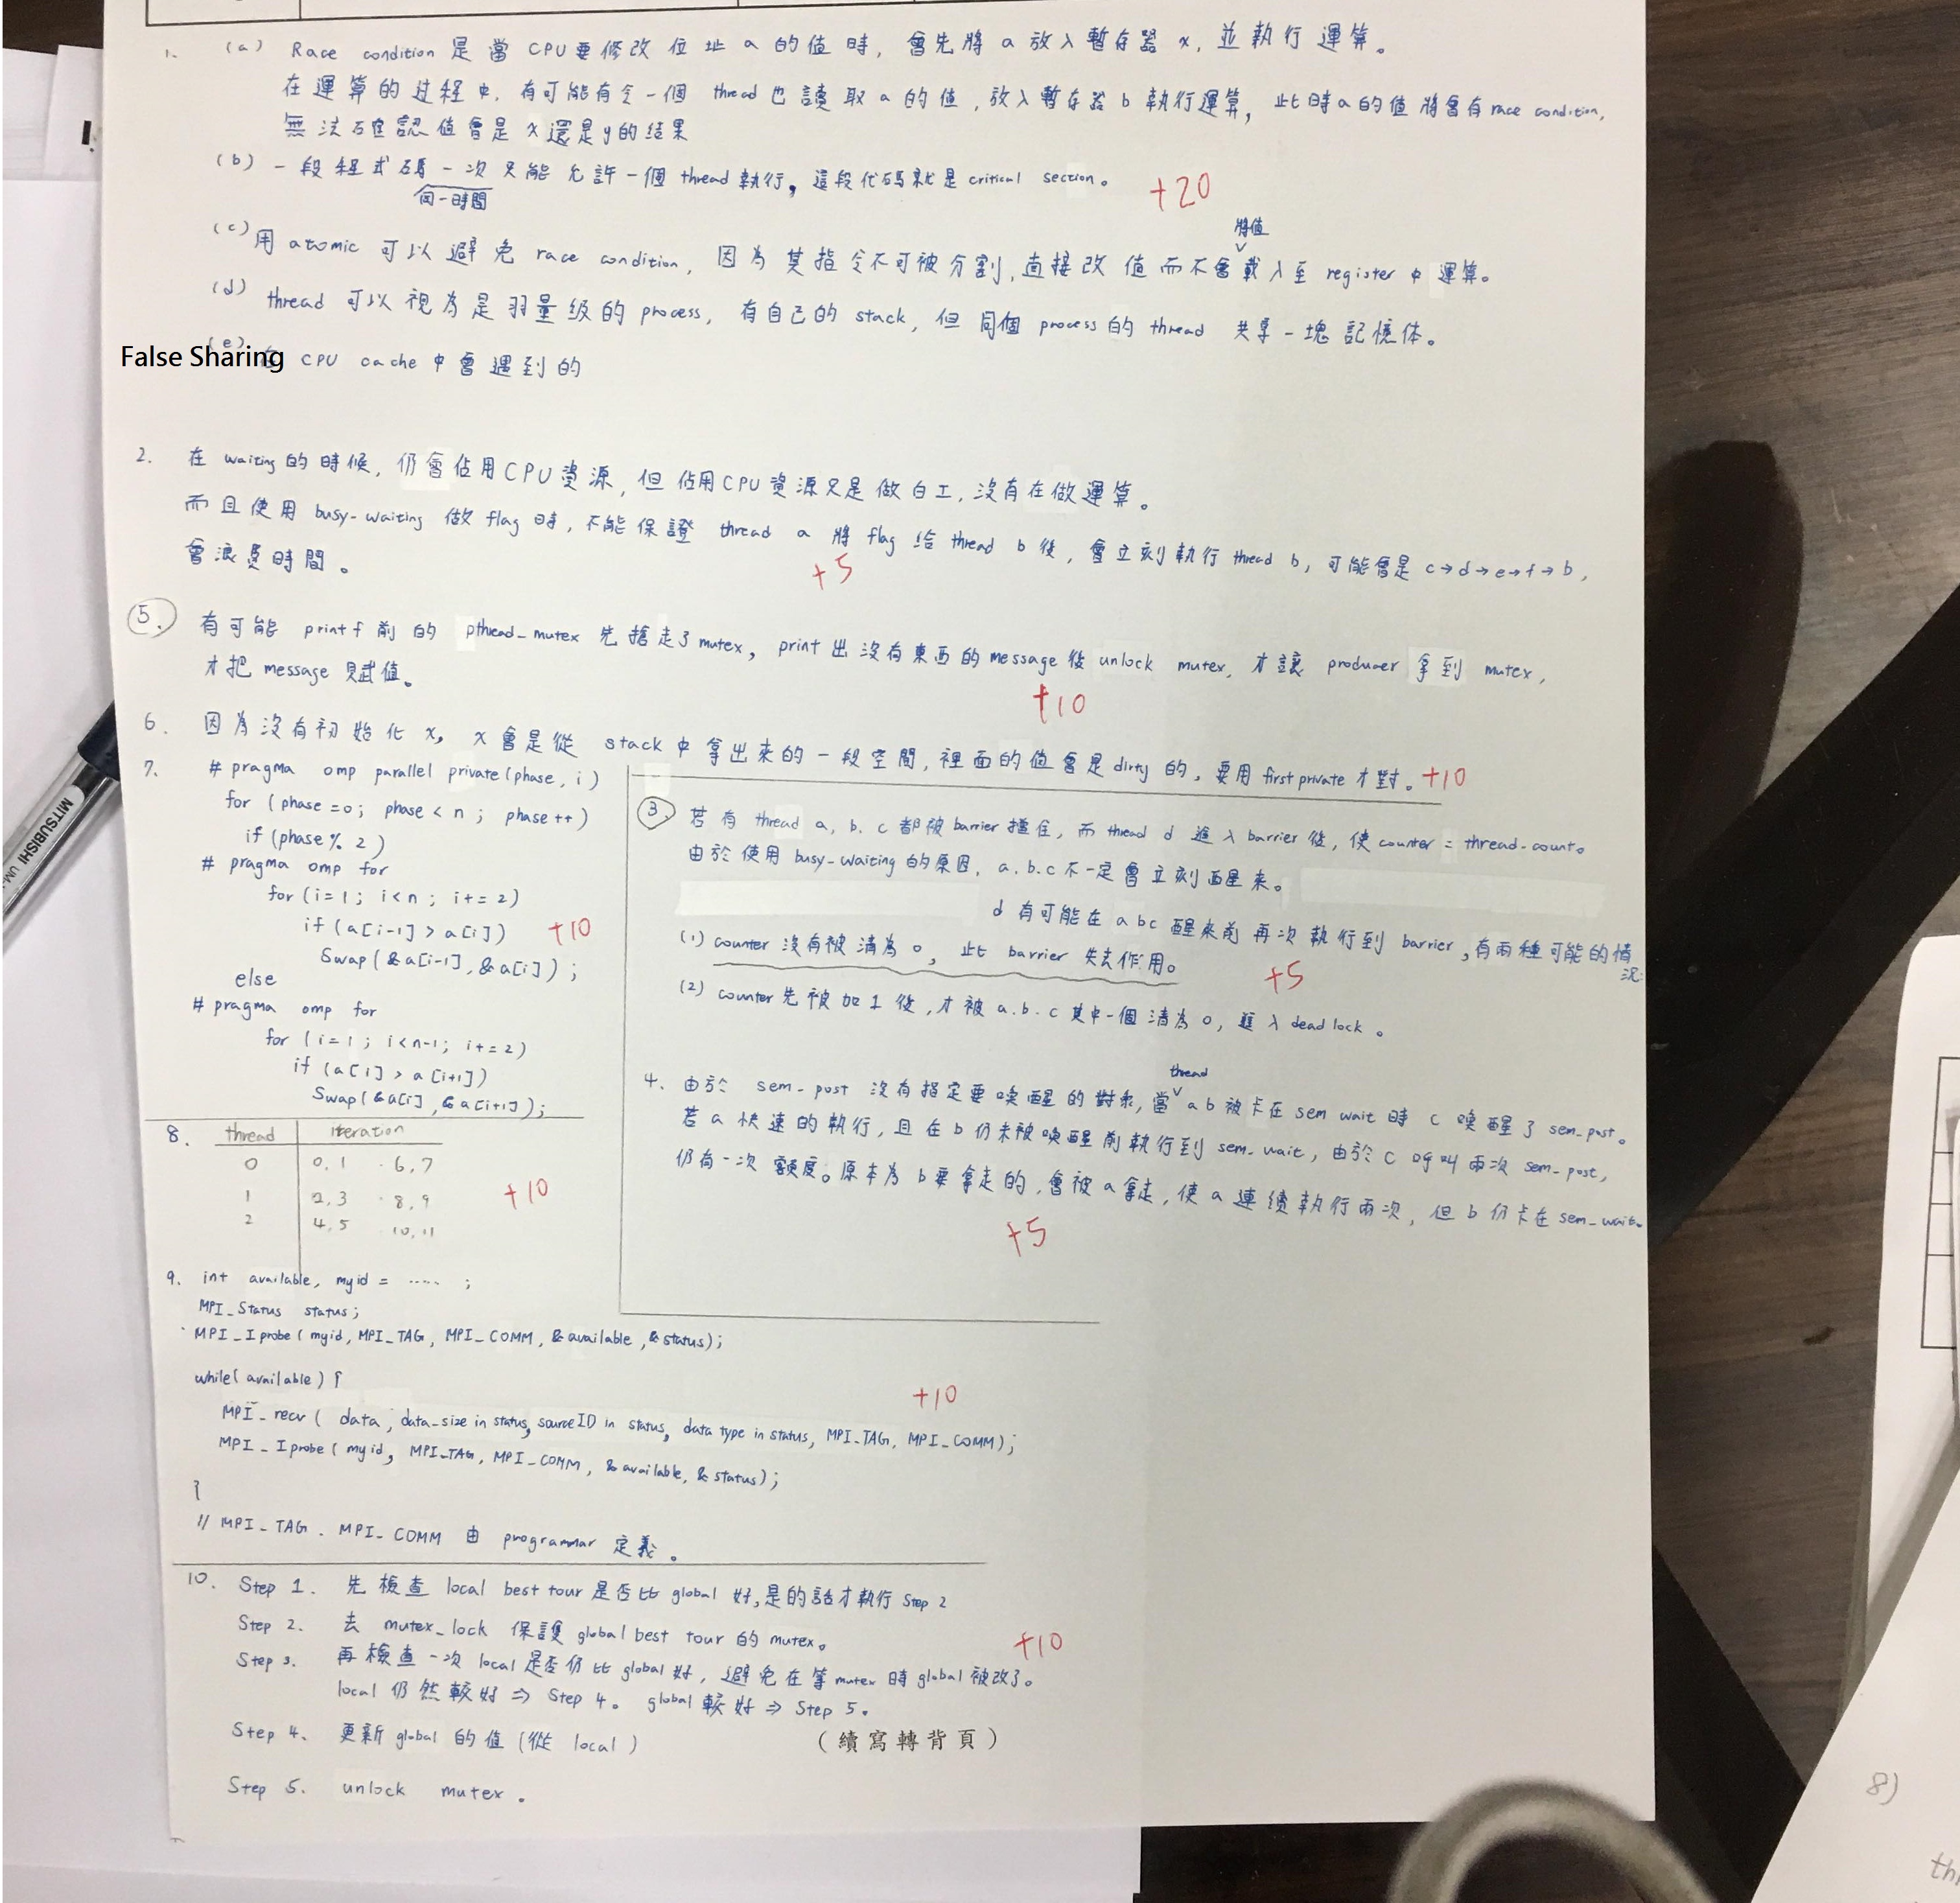 1. (a) Race condition 是當 CPU要修改位址 a 的值時, 會先將 a 放入暫存器 x, 並執行運算。
在運算的过程中, 有可能有令一個 thread 也讀取 a 的值, 放入暫存器 b 執行運算, 此時a的值將會有 race condition,
無法確認值會是 x 還是 y 的结果
(b) 一段程式碼一次只能允許一個 thread 執行, 這段代碼就是 critical section。
同一時間
+20
將值
(c) 用 atomic 可以避免 race condition, 因為其指令不可被分割, 直接改值而不會載入至 register 中運算。
(d) thread 可以視為是羽量級的 process, 有自己的 stack, 但同個 process 的 thread 共享一塊記憶体。
(e) 在 CPU cache 中會遇到的
False Sharing
2. 在 waiting 的時候, 仍會佔用CPU資源, 但佔用CPU資源只是做白工, 沒有在做運算。
而且使用 busy-waiting 做 flag 時, 不能保證 thread a 將 flag 給 thread b 後, 會立刻執行 thread b, 可能會是 c→d→e→f→b,
會浪費時間。
+5
5. 有可能 printf 前的 pthread_mutex 先搶走了 mutex, print 出沒有東西的 message 後 unlock mutex, 才讓 producer 拿到 mutex,
才把 message 賦值。
+10
6. 因為沒有初始化 x, x 會是從 stack 中拿出來的一段空間, 裡面的值會是 dirty 的, 要用 first private 才對。 +10
7. # pragma omp parallel private(phase, i)
for (phase =0; phase < n; phase ++)
if (phase % 2)
# pragma omp for
for (i=1; i<n; i+=2)
if (a[i-1] > a[i])
+10
Swap(&a[i-1], &a[i]);
else
# pragma omp for
for (i=1; i<n-1; i+=2)
if (a[i] > a[i+1])
Swap(&a[i], &a[i+1]);
3. 若有 thread a, b, c 都被 barrier 擋住, 而 thread d 進入 barrier 後, 使 counter = thread-count。
由於使用 busy-waiting 的原因, a.b.c 不一定會立刻醒來。
d 有可能在 abc 醒來前再次執行到 barrier, 有兩種可能的情況:
(1) counter 沒有被清為 0, 此 barrier 失去作用。
+5
(2) counter 先被加 1 後, 才被 a.b.c 其中一個清為 0, 進入 dead lock。
thread
4. 由於 sem_post 沒有指定要喚醒的對象, 當 a b 被卡在 sem wait 時 c 喚醒了 sem_post。
若 a 快速的執行, 且在 b 仍未被喚醒前執行到 sem_wait, 由於 c 呼叫兩次 sem_post,
仍有一次額度。原本為 b 要拿走的, 會被 a 拿走, 使 a 連續執行兩次, 但 b 仍卡在 sem_wait。
+5
8. thread iteration
0 0, 1 6, 7
1 2, 3 8, 9
2 4, 5 10, 11
+10
9. int available, myid = ..... ;
MPI_Status status;
MPI_Iprobe(myid, MPI_TAG, MPI_COMM, &available, &status);
while(available) {
+10
MPI_recv( data, data-size in status, source ID in status, data type in status, MPI_TAG, MPI_COMM);
MPI_Iprobe(myid, MPI_TAG, MPI_COMM, &available, &status);
}
// MPI_TAG. MPI_COMM 由 programmar 定義。
10. Step 1. 先檢查 local best tour 是否比 global 好, 是的話才執行 Step 2
Step 2. 去 mutex_lock 保護 global best tour 的 mutex。
+10
Step 3. 再檢查一次 local 是否仍比 global 好, 避免在等 mutex 時 global 被改了。
local 仍然較好 ⇒ Step 4。 global 較好 ⇒ Step 5。
Step 4. 更新 global 的值 (從 local)
(續寫轉背頁)
Step 5. unlock mutex.
MITSUBISHI
8)